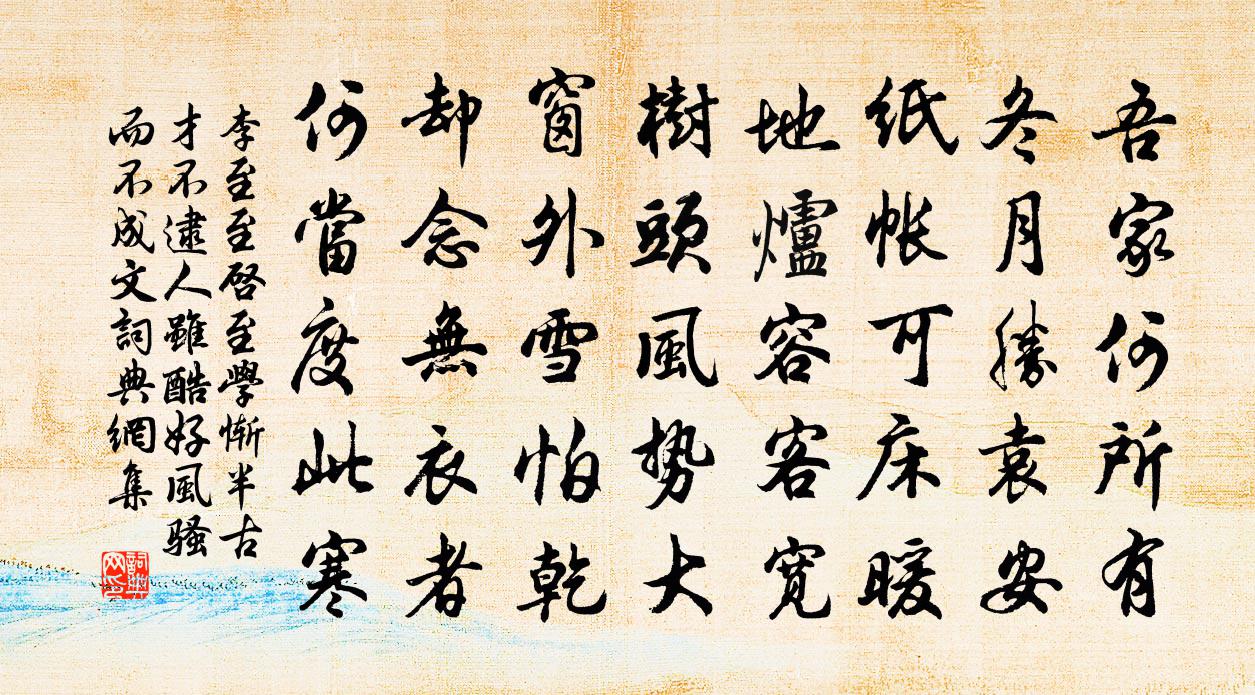 吾家何所有
冬月勝袁安
紙帳可床暖
地爐容客寬
樹頭風勢大
窗外雪怕乾
却念無衣者
何當度此寒
李至至啓至學慚半古
才不逮人雖酷好風騷
而不成文詞典網集